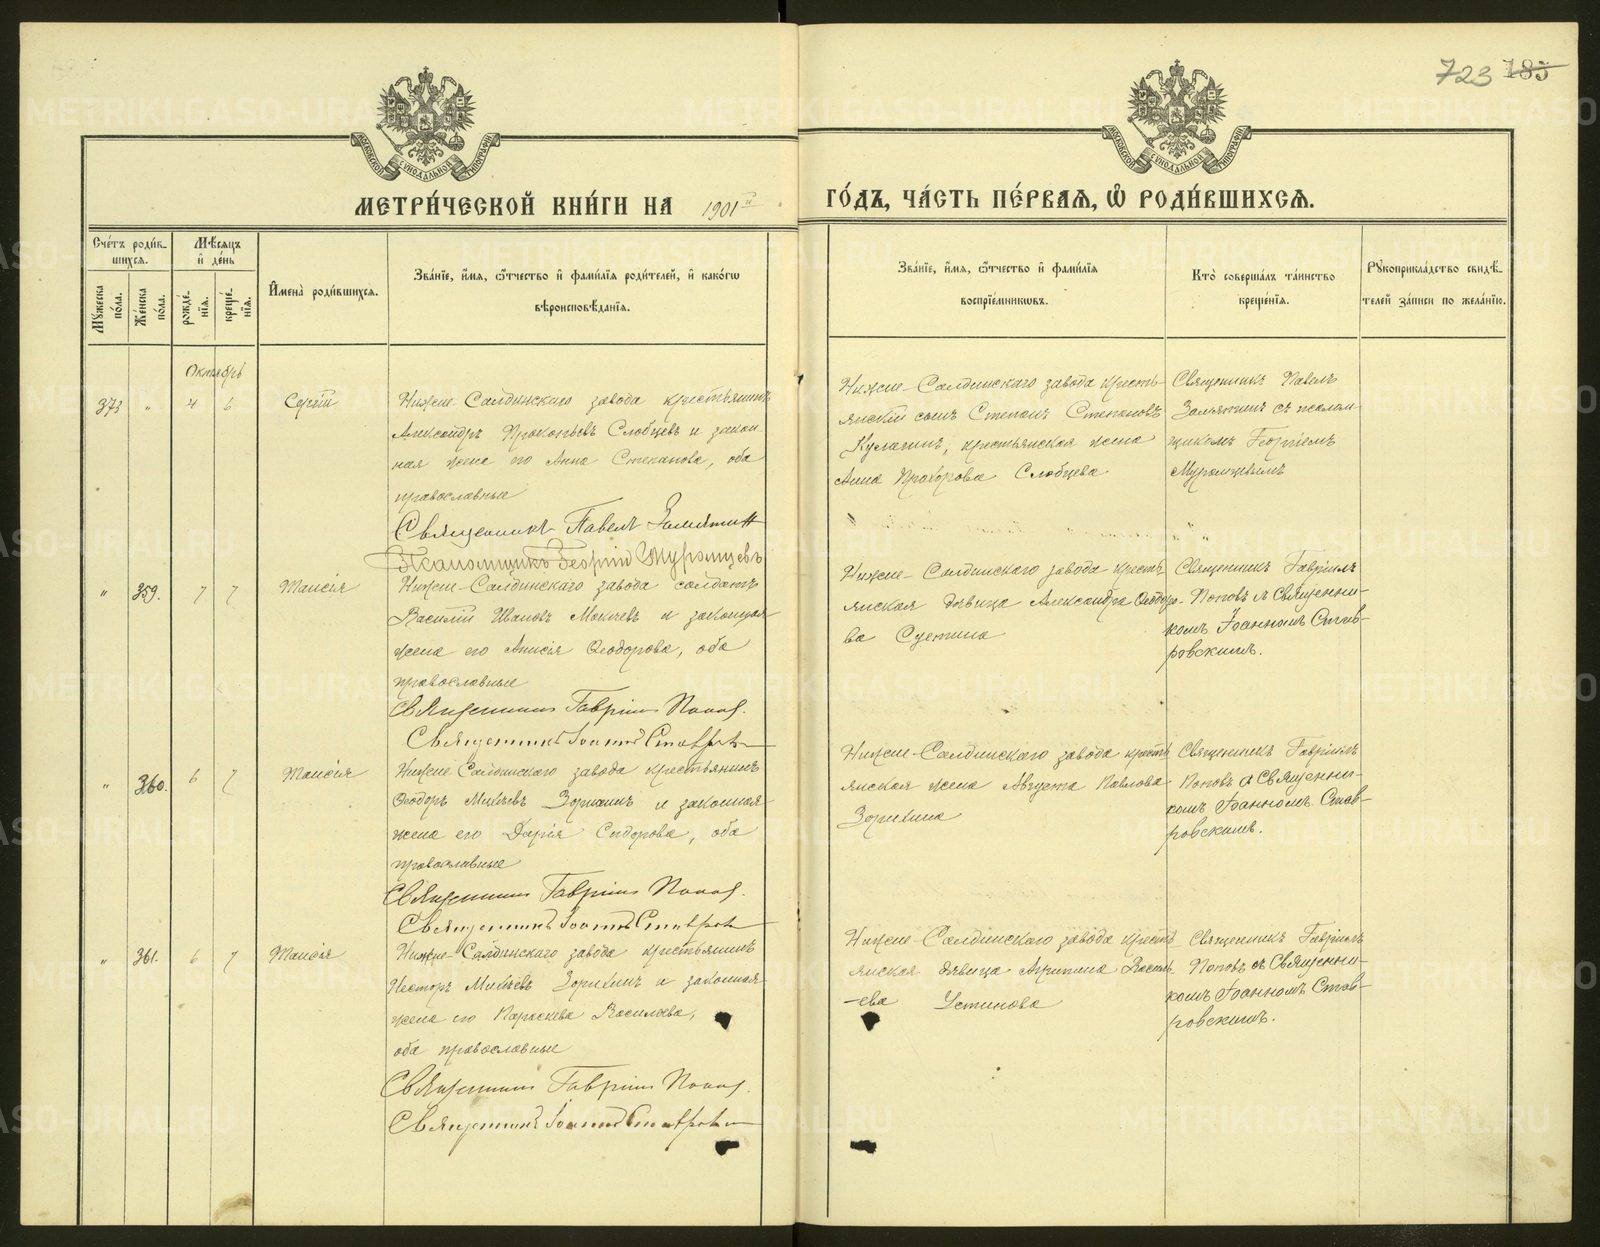 723 185
МОСКОВСКОЙ СѴНОДАЛЬНОЙ ТИПОГРАФІИ
МОСКОВСКОЙ СѴНОДАЛЬНОЙ ТИПОГРАФІИ
МЕТРИ́ЧЕСКОЙ КНИ́ГИ НА 1901й ГО́ДЪ, ЧА́СТЬ ПЕ́РВАѦ, Ѡ҆ РОДИ́ВШИХСѦ.
Сче́тъ роди́в-
шихсѧ.
Мꙋ́жеска по́ла.
Же́нска по́ла.
Мѣ́сѧцъ
и҆ де́нь
рожде́-
нїѧ.
креще́-
нїѧ.
И҆мена̀ роди́вшихсѧ.
Зва́нїе, и҆́мѧ, ѻ҆́тчество и҆ фами́лїѧ роди́телей, и҆ како́гѡ
вѣроисповѣ́данїѧ.
Зва́нїе, и҆́мѧ, ѻ҆́тчество и҆ фами́лїѧ
воспрїе́мникѡвъ.
Кто̀ соверша́лъ та́инство
креще́нїѧ.
Рꙋкоприкла́дство свидѣ́-
телей за́писи по жела́нїю.
Октябрь
373 " 4 6 Сергій
Нижне-Салдинскаго завода крестьянинъ
Александръ Прокопьевъ Слобцевъ и закон
ная жена его Анна Степанова, оба
православные
Священникъ Павелъ Замятин
Псаломщикъ Георгій Муромцевъ
Нижне-Салдинскаго завода кресть-
янскій сынъ Степанъ Степановъ
Кулагинъ, крестьянская жена
Анна Прохорова Слобцева
Священникъ Павелъ
Замятинъ съ псалом
щикомъ Георгіемъ
Муромцевымъ
" 359. 7 7 Таисія
Нижне-Салдинскаго завода солдатъ
Василій Ивановъ Мокѣевъ и законная
жена его Анисія Ѳеодорова, оба
православные
Священникъ Гавріилъ Поповъ.
Священникъ Іоаннъ Ставров
Нижне-Салдинскаго завода кресть
янская дѣвица Александра Ѳеодоро-
ва Суетина
Священникъ Гавріилъ
Поповъ съ Священни-
комъ Іоанномъ Став-
ровскимъ.
" 360. 6 7 Таисія
Нижне-Салдинскаго завода крестьянинъ
Ѳеодоръ Михѣевъ Зорихинъ и законная
жена его Дарія Сидорова, оба
православные
Священникъ Гавріилъ Поповъ.
Священникъ Іоаннъ Ставров
Нижне-Салдинскаго завода кресть
янская жена Августа Павлова
Зорихина
Священникъ Гавріилъ
Поповъ съ Священни-
комъ Іоанномъ Став-
ровскимъ.
" 361. 6 7 Таисія
Нижне-Салдинскаго завода крестьянинъ
Несторъ Михѣевъ Зорихинъ и законная
жена его Параскева Васильева,
оба православные
Священникъ Гавріилъ Поповъ.
Священникъ Іоаннъ Ставров
Нижне-Салдинскаго завода кресть
янская дѣвица Агрипина Василь
-ева Устинова
Священникъ Гавріилъ
Поповъ съ Священни-
комъ Іоанномъ Став-
ровскимъ.
METRIKI.GASO-URAL.RU